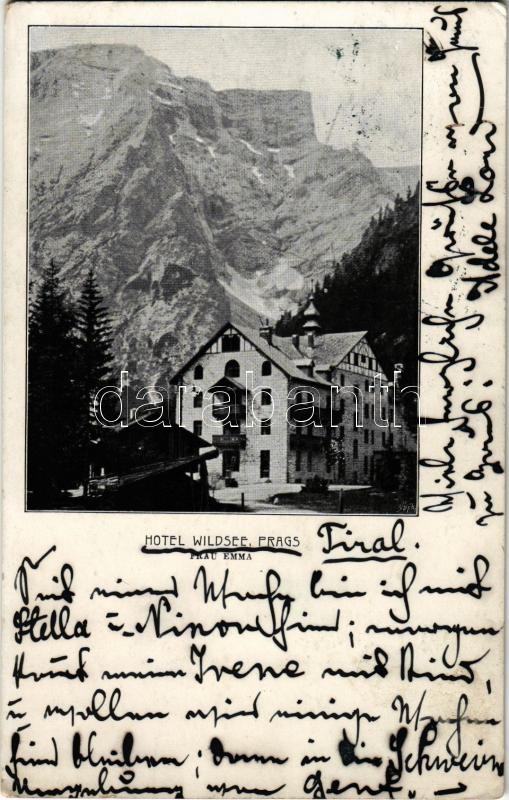 darabanth
HOTEL WILDSEE, PRAGS
FRAU EMMA
Tirol.
Seit einer Woche bin ich mit
Stella u. Ninon hier; morgen
kommt meine Irene mit Kind,
u. wollen wir einige Wochen
hier bleiben; dann in die Schweiz
Umgebung von Genf. →
Viele herzliche Grüße von
Adele